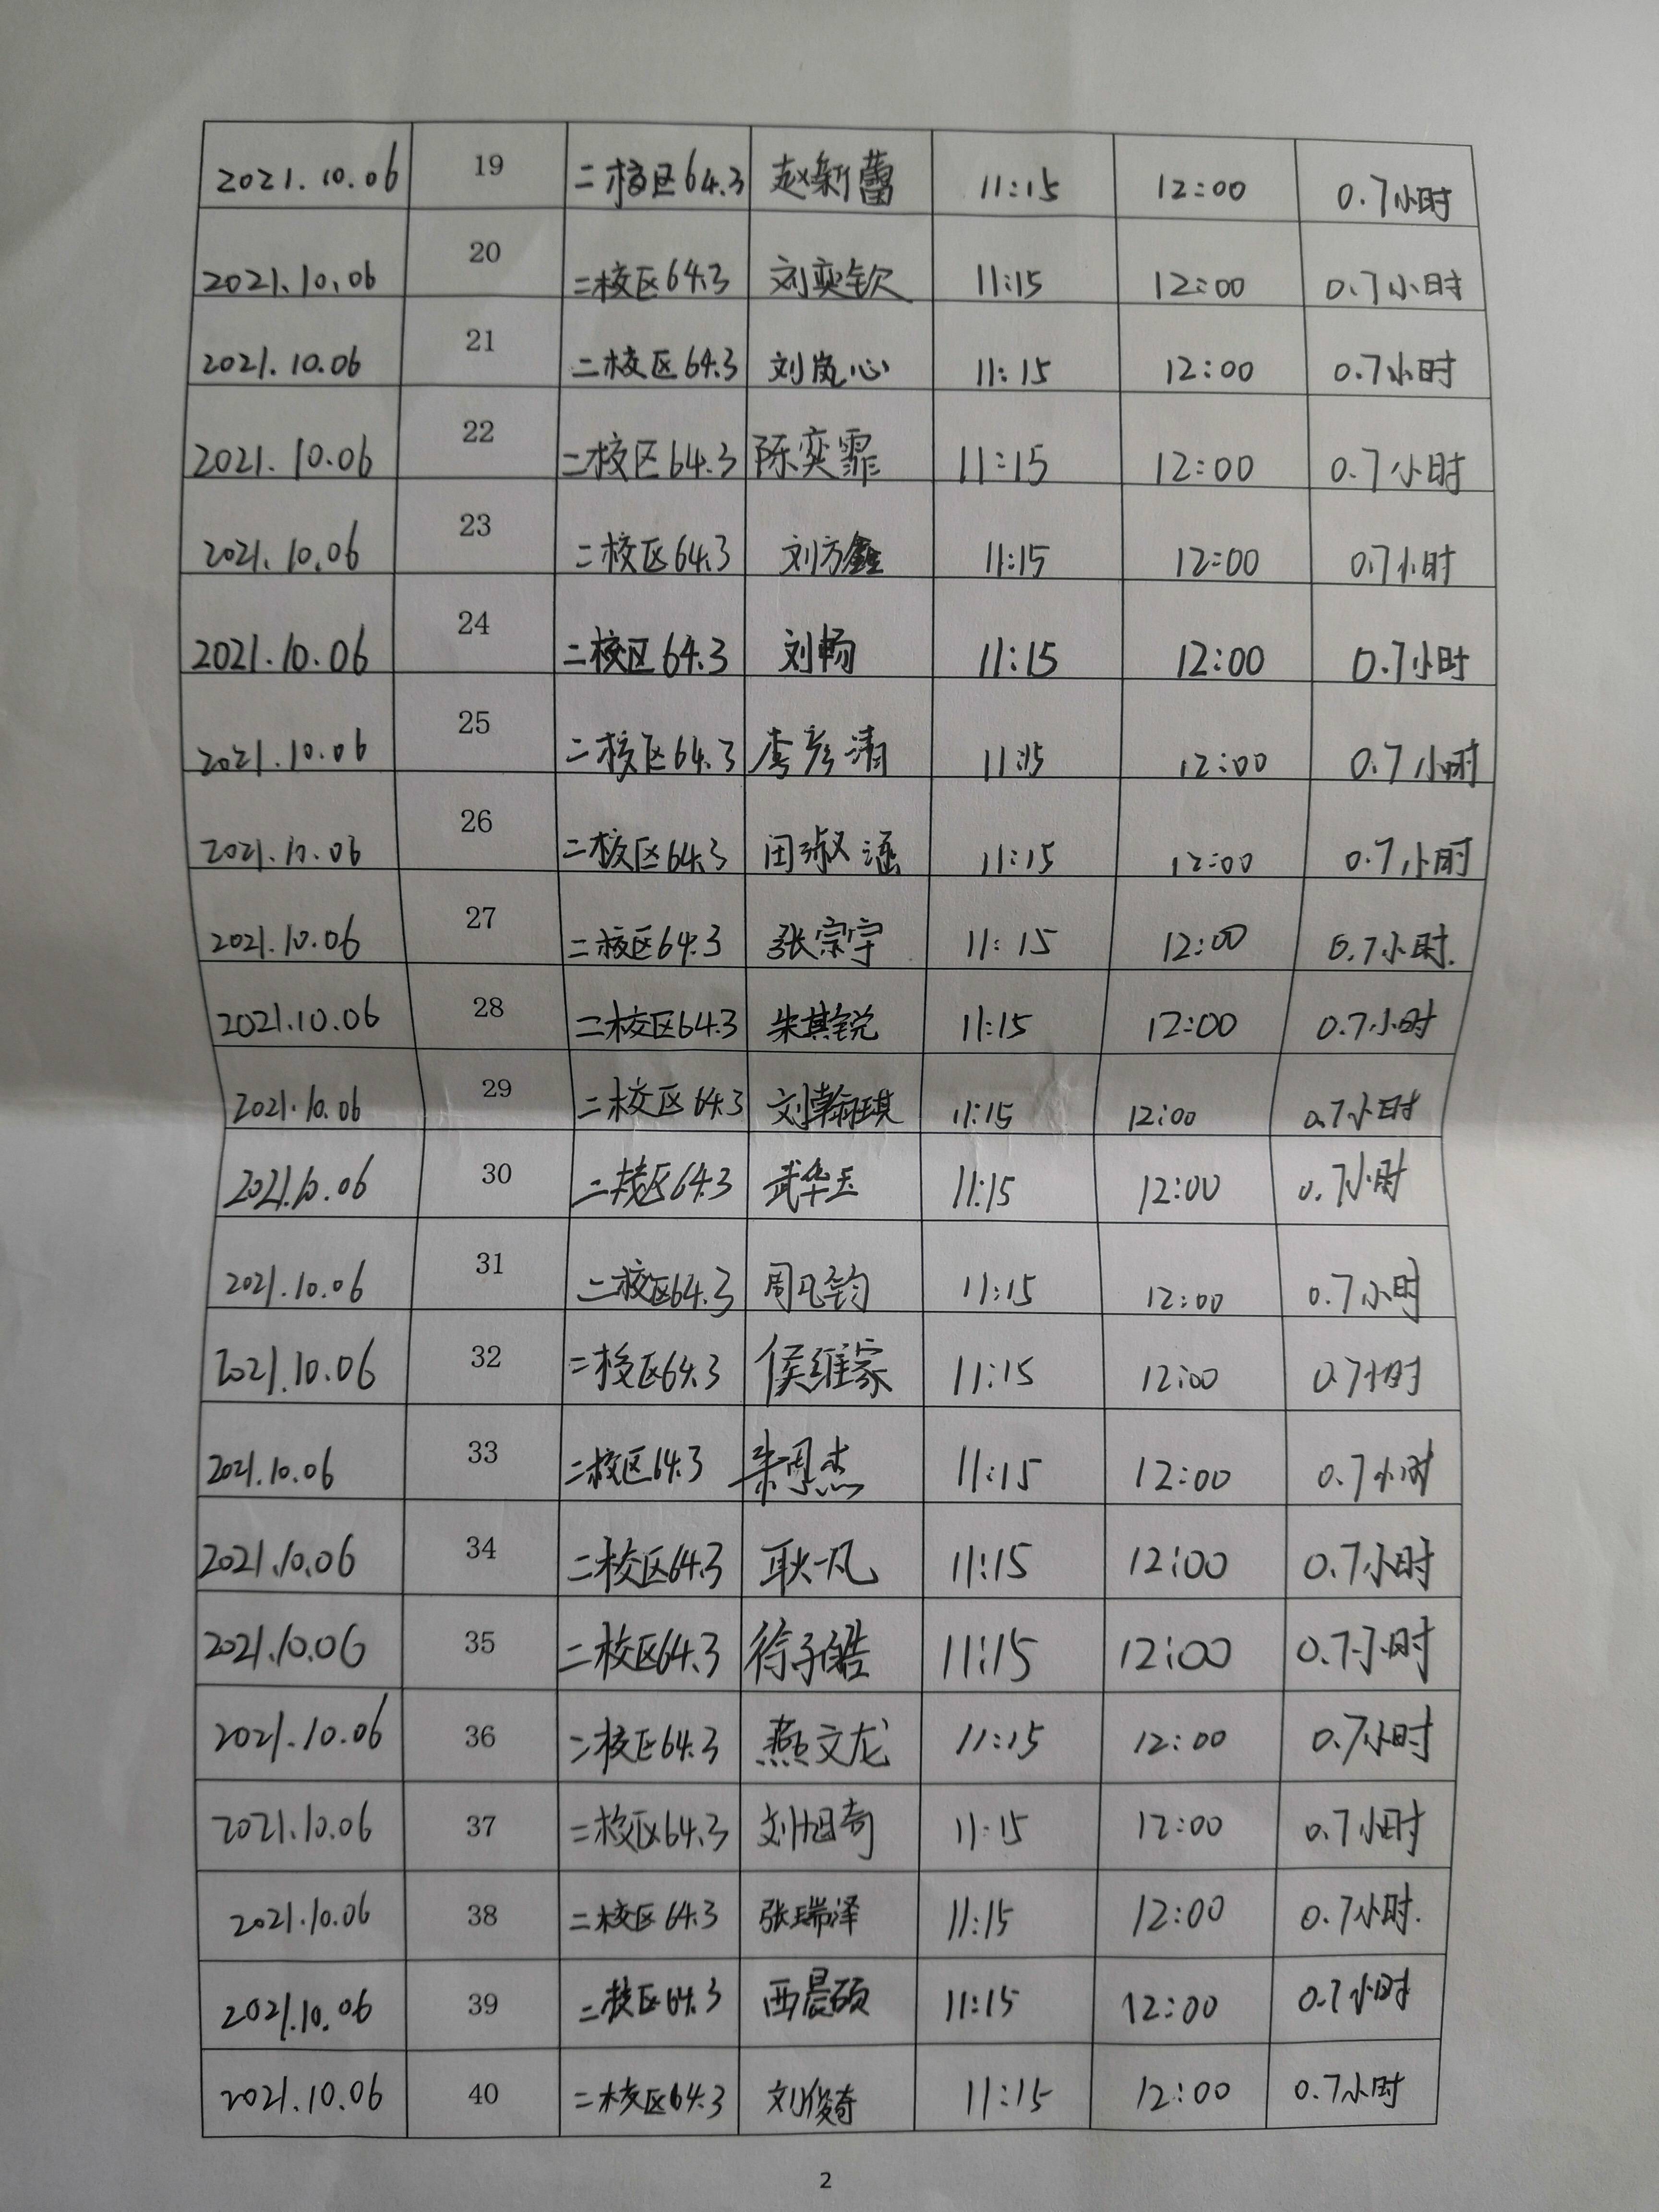 2021.10.06 19 二校区64.3 赵新蕾 11:15 12:00 0.7小时
2021.10.06 20 二校区64.3 刘奕钦 11:15 12:00 0.7小时
2021.10.06 21 二校区64.3 刘岚心 11:15 12:00 0.7小时
2021.10.06 22 二校区64.3 陈奕霏 11:15 12:00 0.7小时
2021.10.06 23 二校区64.3 刘方鑫 11:15 12:00 0.7小时
2021.10.06 24 二校区64.3 刘畅 11:15 12:00 0.7小时
2021.10.06 25 二校区64.3 李彦清 11:15 12:00 0.7小时
2021.10.06 26 二校区64.3 田淑涵 11:15 12:00 0.7小时
2021.10.06 27 二校区64.3 张宗宇 11:15 12:00 0.7小时.
2021.10.06 28 二校区64.3 朱其锐 11:15 12:00 0.7小时
2021.10.06 29 二校区64.3 刘翰琪 11:15 12:00 0.7小时
2021.10.06 30 二校区64.3 武华玉 11:15 12:00 0.7小时
2021.10.06 31 二校区64.3 周凡钧 11:15 12:00 0.7小时
2021.10.06 32 二校区64.3 侯维家 11:15 12:00 0.7小时
2021.10.06 33 二校区64.3 朱周杰 11:15 12:00 0.7小时
2021.10.06 34 二校区64.3 耿一凡 11:15 12:00 0.7小时
2021.10.06 35 二校区64.3 徐子皓 11:15 12:00 0.7小时
2021.10.06 36 二校区64.3 燕文龙 11:15 12:00 0.7小时
2021.10.06 37 二校区64.3 刘旭奇 11:15 12:00 0.7小时
2021.10.06 38 二校区64.3 张瑞泽 11:15 12:00 0.7小时.
2021.10.06 39 二校区64.3 西晨硕 11:15 12:00 0.7小时
2021.10.06 40 二校区64.3 刘俊奇 11:15 12:00 0.7小时
2